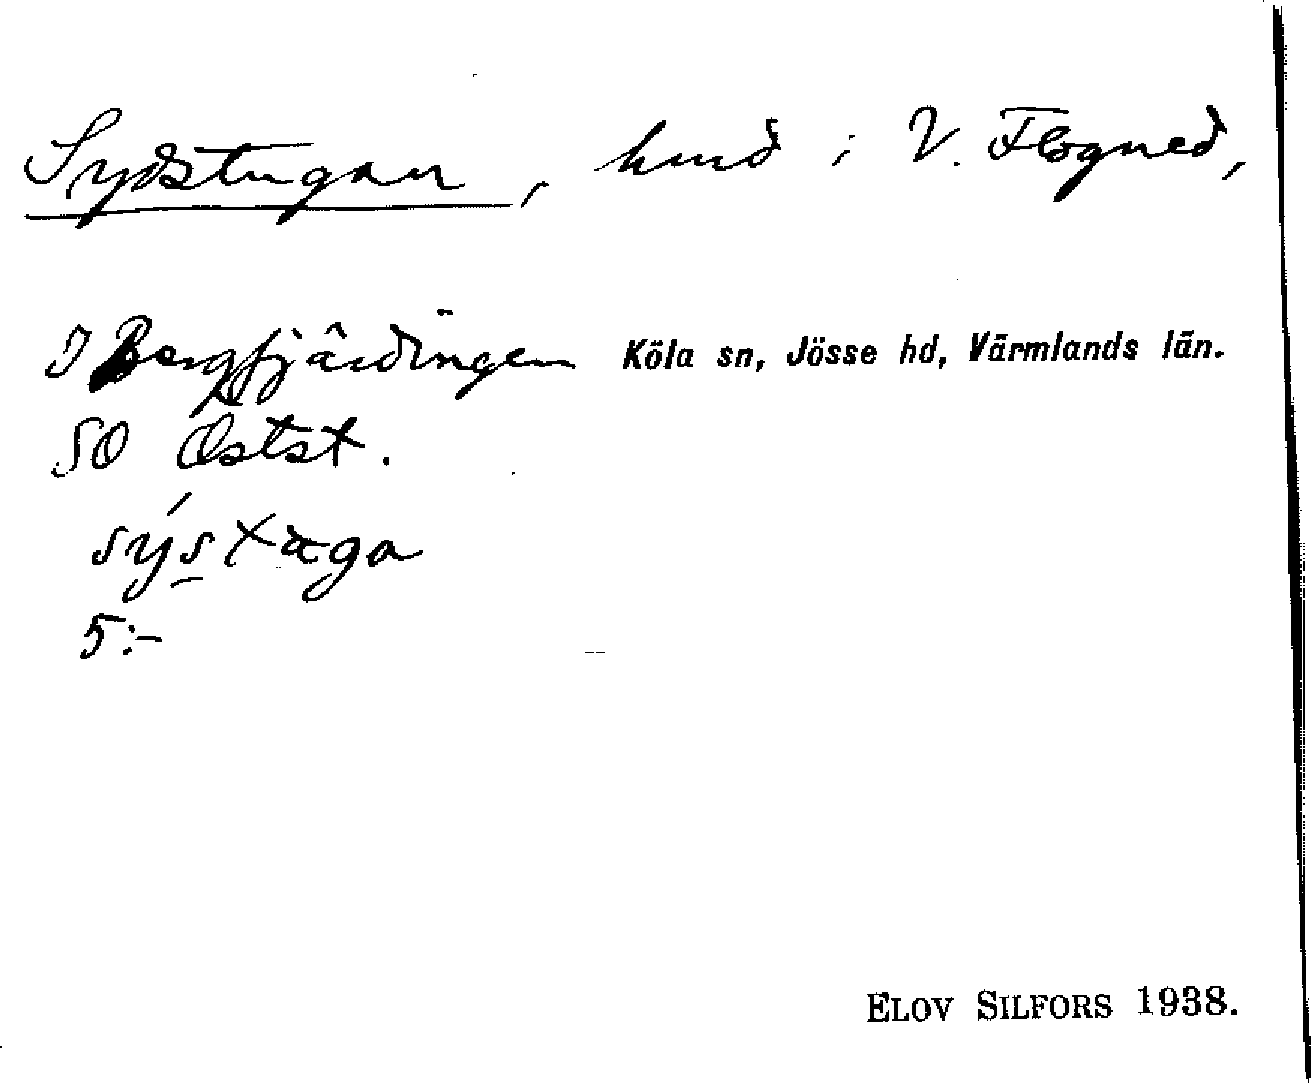 Sydstugan, hmd i V. Flogned,
I Bergfjärdingen Köla sn, Jösse hd, Värmlands län.
SO Östst.
sýstæga
5:-
ELOV SILFORS 1938.